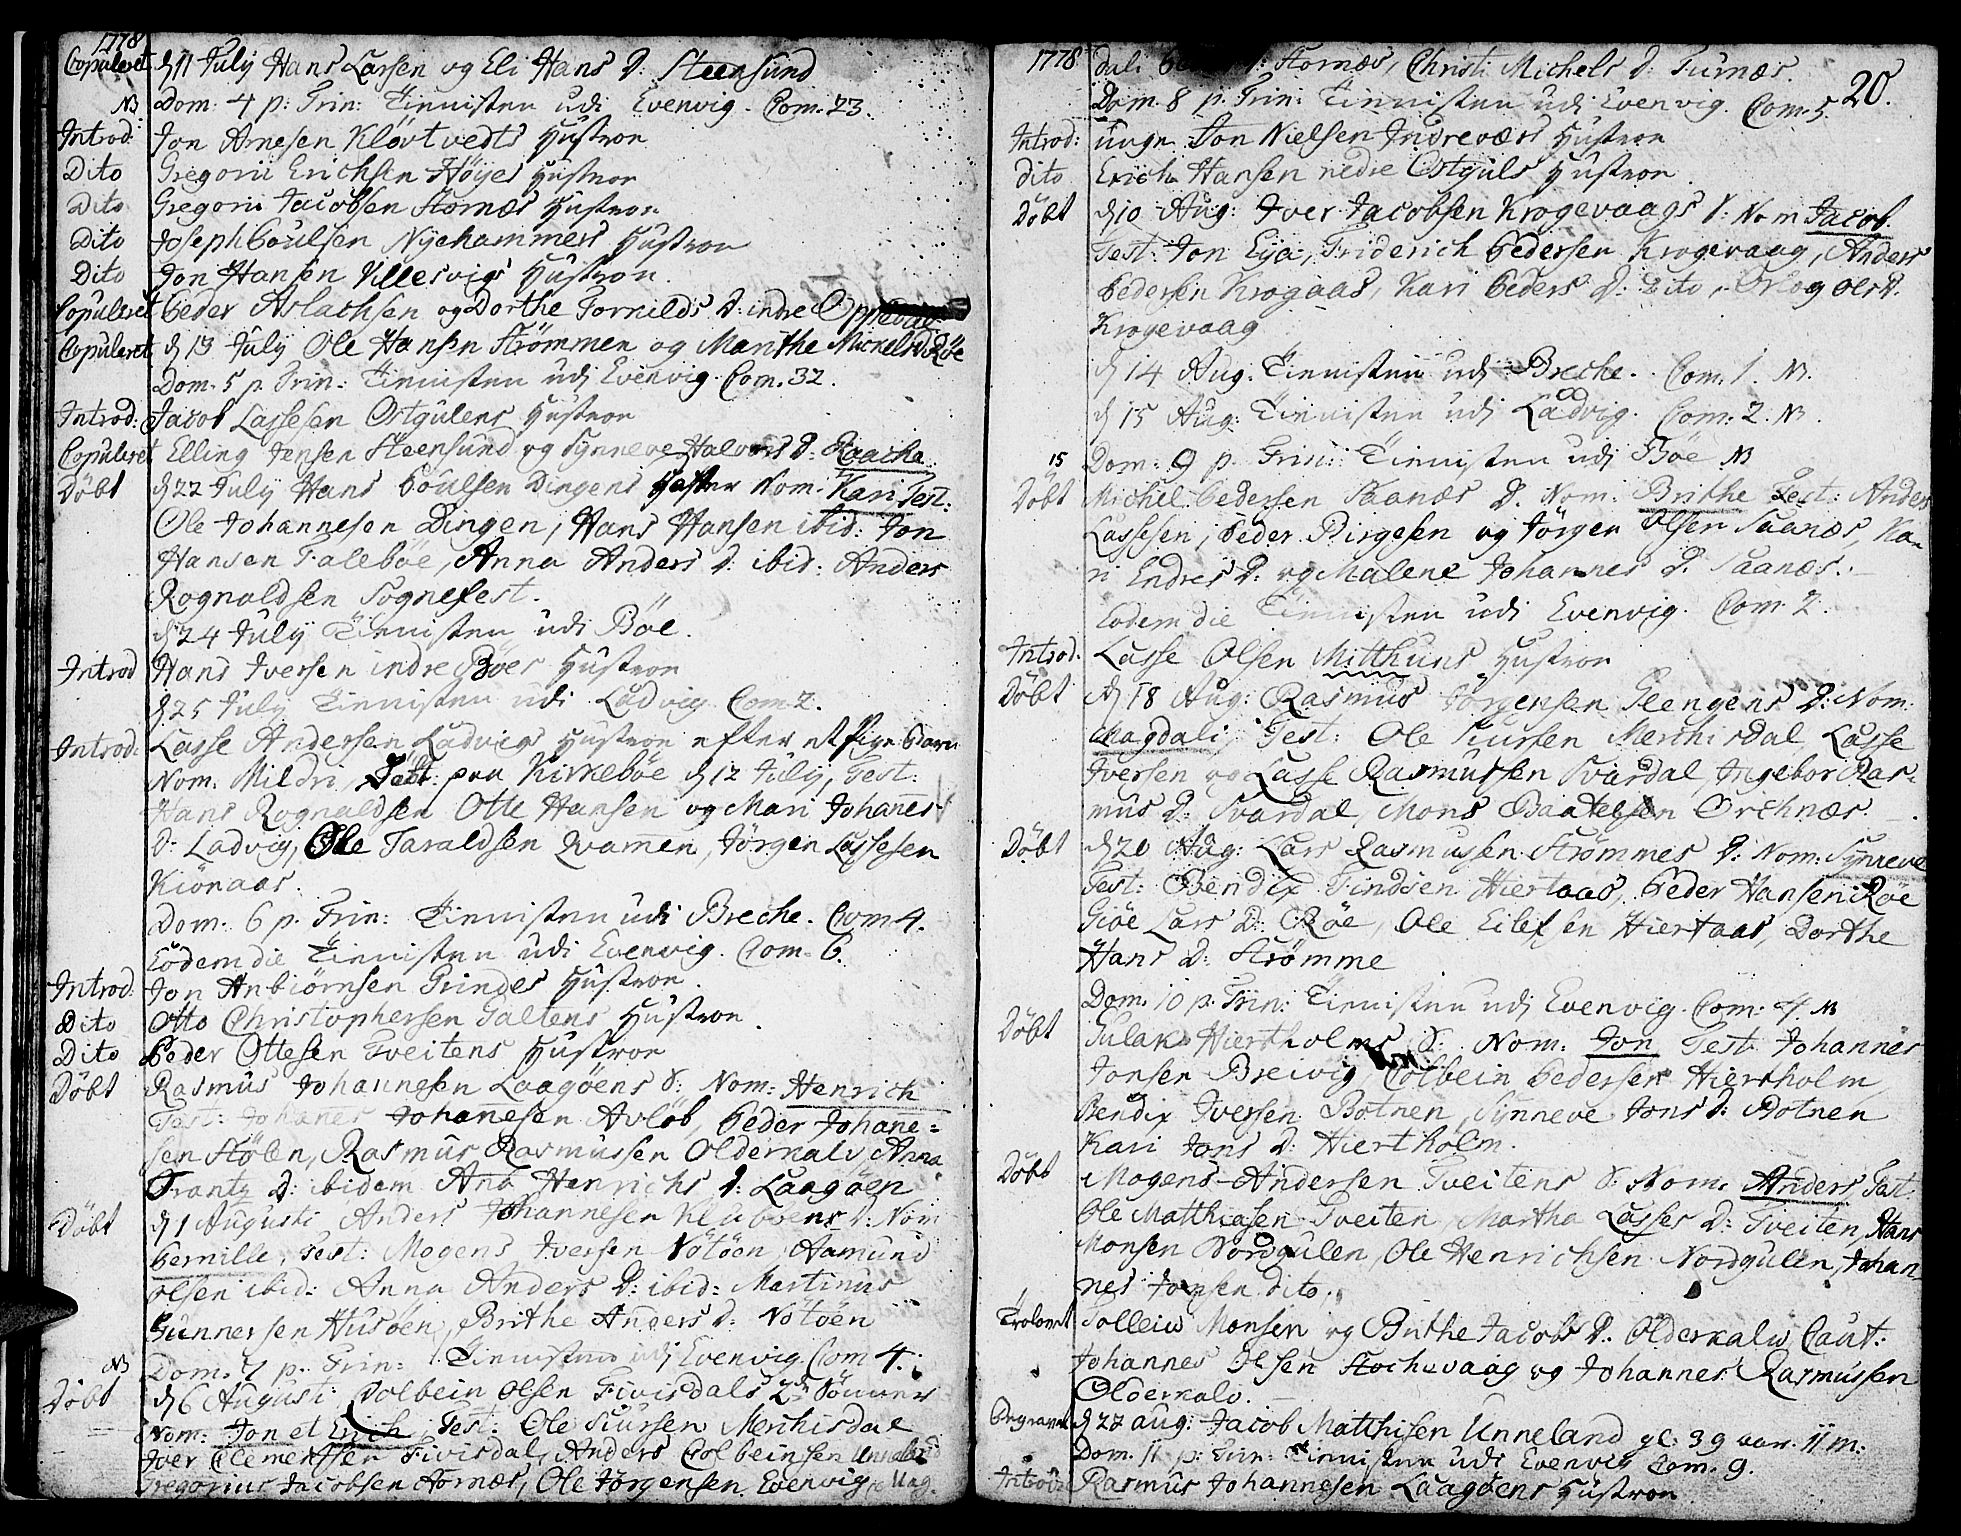 1778
Copuleret d 11 July Hans Larsen og Eli Hans D: Steensund
NB Dom: 4 p: Trin: Tienisten udi Evenvig. Com. 23.
Introd: Jon Arnesen Kløvtvedts Hustroe
Dito Gregorii Erichsen Höyes Hustroe
Dito Gregorii Jacobsen Stornæs Hustroe
Dito Joseph Poulsen Nyehammers Hustroe
Dito Jon Hansen Villesvigs Hustroe.
Copuleret Peder Aslachsen og Dorthe Tornilds D: indre
Copuleret d 13 July Ole Hansen Strömmen og Marithe Michels D Röe
Dom. 5 p. Trin: Tienisten udi Evenvig. Com. 32.
Introd: Jacob Lassesen Ostgulens Hustroe
Copuleret Elling Jensen Steensund og Synneve Halvors D: Kaache
Döbt d 22 July Hans Poulsen Dingens Nom. Kari Test:
Ole Johannesen Dingen, Hans Hansen ibid: Jon
Hansen Falebøe, Anna Anders D: ibid: Anders
Rognaldsen Sognefest.
d 24 July Tienisten udi Böe.
Introd Hans Iversen indre Böes Hustroe
d 25 July Tienisten udi Ladvig Com 2.
Introd: Lasse Andersen Ladvigs Hustroe efter et Pige Barn
Nom. Mildri, Döbt paa Kirkebøe d 12 July, Test:
Hans Rognaldsen Otte Hansen og Mari Johanes
D: Ladvig, Ole Taraldsen Qvamen, Jörgen Lassesen
Kiönaas.
Dom. 6 p. Trin: Tienisten udi Breche. Com 4.
Eodem die Tienisten udi Evenvig. Com. 6.
Introd: Jon Anbiörnsen Grindes Hustroe.
Dito Otto Christophersen Galtens Hustroe.
Dito Peder Ottesen Tveitens Hustroe
Döbt Rasmus Johannesen Laagöens S: Nom: Henrich
Test: Johanes Johanesen Avlöb, Peder Johane=
sen Stölen, Rasmus Rasmussen Olderkalv, Anna
Frantz D: ibidem Ana Henrichs D: Laagöen
Döbt d 1 Augusti Anders Johannesen Kluböens D: Nom
Pernille, Test: Mogens Iversen Nötöen, Aamund
Olsen ibid: Anna Anders D: ibid: Martinus
Gunnersen Husöen, Brithe Anders D: Nötöen
NB Dom. 7 p. Trin: Tienisten udi Evenvig Com 4.
Döbt d 6 Augusti Colbein Olsen Fivisdals 2de Sönner
Nom: Jon et Erich Test: Ole Siursen Merchisdal
Iver Clementsen Fivisdal, Anders Colbeinsen
Gregorius Jacobsen Stornæs, Ole Jörgensen Evenvig, Ung.
1778 dali D: Stornæs, Christi Michels D: Furnæs. 20.
Dom. 8 p. Trin: Tienisten udi Evenvig. Com. 5.
Introd: unge Jon Nielsen Indreværs Hustroe
dito Erich Hansen nedre Ostguls Hustroe
Döbt d 10 Aug: Iver Jacobsen Krogevaags S: Nom Jacob.
Test: Jon Eya, Friderich Pedersen Krogevaag, Anders
Pedersen Krogaas, Kari Peders D: Dito,
Krogevaag
d 14 Aug. Tienisten udi Breche. Com. 1. NB.
d 15 Aug: Tienisten udi Ladvig. Com: 2. NB
15 Dom: 9 p. Trin: Tienisten udi Böe NB
Döbt Michel Pedersen Saanæs D. Nom: Brithe Test: Anders
Lassesen, Peder Birgesen og Jörgen Olsen Saanæs, Ka-
ri Endres D: og Malene Johannes D. Saanæs.
Eodem die Tienisten udi Evenvig. Com. 2.
Introd. Lasse Olsen Mitthuns Hustroe
Döbt d 18 Aug: Rasmus Jörgensen Glengens D: Nom.
Magdali, Test: Ole Siursen Merchisdal, Lasse
Iversen og Lasse Rasmussen Svardal, Ingebor Ras-
mus D: Svardal, Mons Orchnæs.
Döbt d 20 Aug: Lars Rasmussen Strömmes D: Nom: Synneve
Test: Bendix Hiertaas, Peder Hansen Röe
Giöe Lars D: Röe, Ole Eilefsen Hiertaas, Dorthe
Hans D: Strömme
Dom. 10 p. Trin: Tienisten udi Evenvig. Com: 4. NB
Döbt Gulak Hiertholms S: Nom. Jon Test Johannes
Jonsen Breivig, Colbein Pedersen Hiertholm
Bendix Iversen Botnen, Synneve Jons D: Botnen
Kari Jons D: Hiertholm.
Döbt Mogens Andersen Tveitens S: Nom. Anders Test.
Ole Matthiasen Tveiten, Martha Lasses D: Tveiten, Hans
Monsen Nordgulen, Ole Henrichsen Nordgulen, Johan-
nes Jonsen dito.
Trolovet Solleiv Monsen og Brithe Jacobs D. Olderkalv, Caut:
Johannes Olsen Stochevaag og Johannes Rasmussen
Olderkalv.
Begravet d 22 aug: Jacob Matthisen Unneland gl: 39 aar. 11 m:
Dom. 11 p. Trin: Tienisten udi Evenvig Com. 9.
Introd: Rasmus Johannesen Laagöens Hustroe